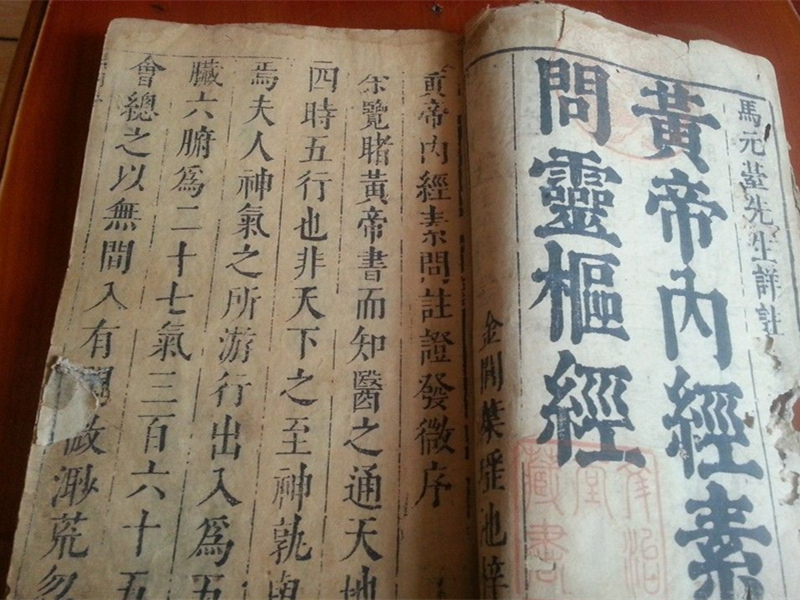 馬元臺先生詳註
黃帝內經素
問靈樞經
金閶葉瑤池梓
黃帝內經素問註證發微序
余覽睹黃帝書而知醫之通天地
四時五行也非天下之至神孰與
焉夫人神氣之所游行出入為五
臟六腑為二十七氣三百六十五
會總之以無間入有間微渺荒忽
藏書